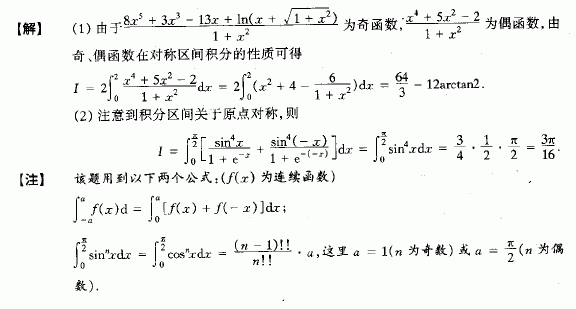 【解】 (1) 由于 (8x⁵ + 3x³ - 13x + ln(x + √(1 + x²)))/(1 + x²) 为奇函数, (x⁴ + 5x² - 2)/(1 + x²) 为偶函数, 由
奇、偶函数在对称区间积分的性质可得
I = 2∫₀² (x⁴ + 5x² - 2)/(1 + x²) dx = 2∫₀² (x² + 4 - 6/(1 + x²))dx = 64/3 - 12arctan2.
(2) 注意到积分区间关于原点对称, 则
I = ∫₀^(π/2) [sin⁴x/(1 + e⁻ˣ) + sin⁴(-x)/(1 + e^(-(-x)))]dx = ∫₀^(π/2) sin⁴xdx = 3/4 · 1/2 · π/2 = 3π/16.
【注】 该题用到以下两个公式:(f(x) 为连续函数)
∫₋ₐᵃ f(x)d = ∫₀ᵃ [f(x) + f(-x)]dx;
∫₀^(π/2) sinⁿxdx = ∫₀^(π/2) cosⁿxdx = (n - 1)!!/n!! · a, 这里 a = 1(n 为奇数) 或 a = π/2 (n 为偶
数).